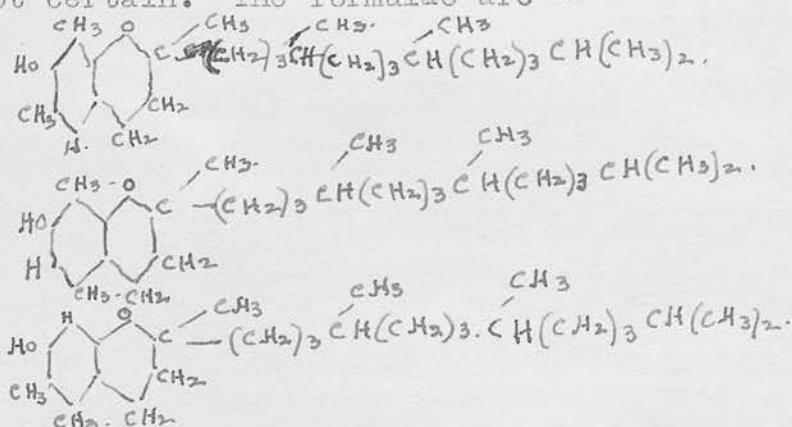 not certain. The formulae are
CH3 O CH3 CH3. CH3
HO C (CH2)3 CH(CH2)3 CH(CH2)3 CH(CH3)2.
CH3 CH2
H. CH2
CH3. CH3 CH3
CH3 - O
HO C - (CH2)3 CH(CH2)3 CH(CH2)3 CH(CH3)2.
H CH2
CH3 - CH2
CH3 CH3 CH3
H O
HO C - (CH2)3 CH(CH2)3. CH(CH2)3 CH(CH3)2.
CH3 CH2
CH3. CH2